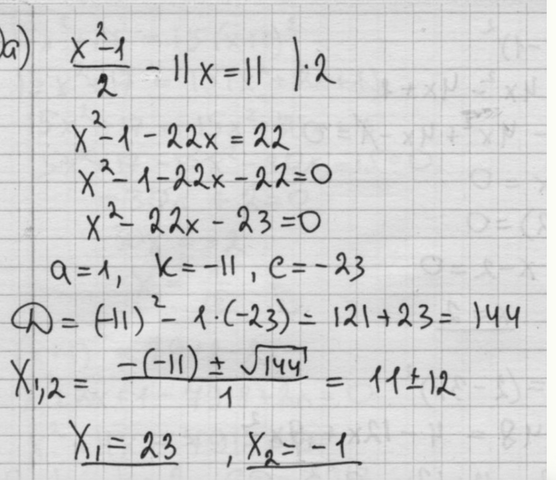 a) (x²-1)/2 - 11x = 11 )·2
x²-1-22x = 22
x²-1-22x-22=0
x²-22x-23=0
a=1, k=-11, c=-23
D = (-11)²-1·(-23) = 121+23 = 144
X₁,₂ = (-(-11) ± √144)/1 = 11±12
X₁ = 23 , X₂ = -1